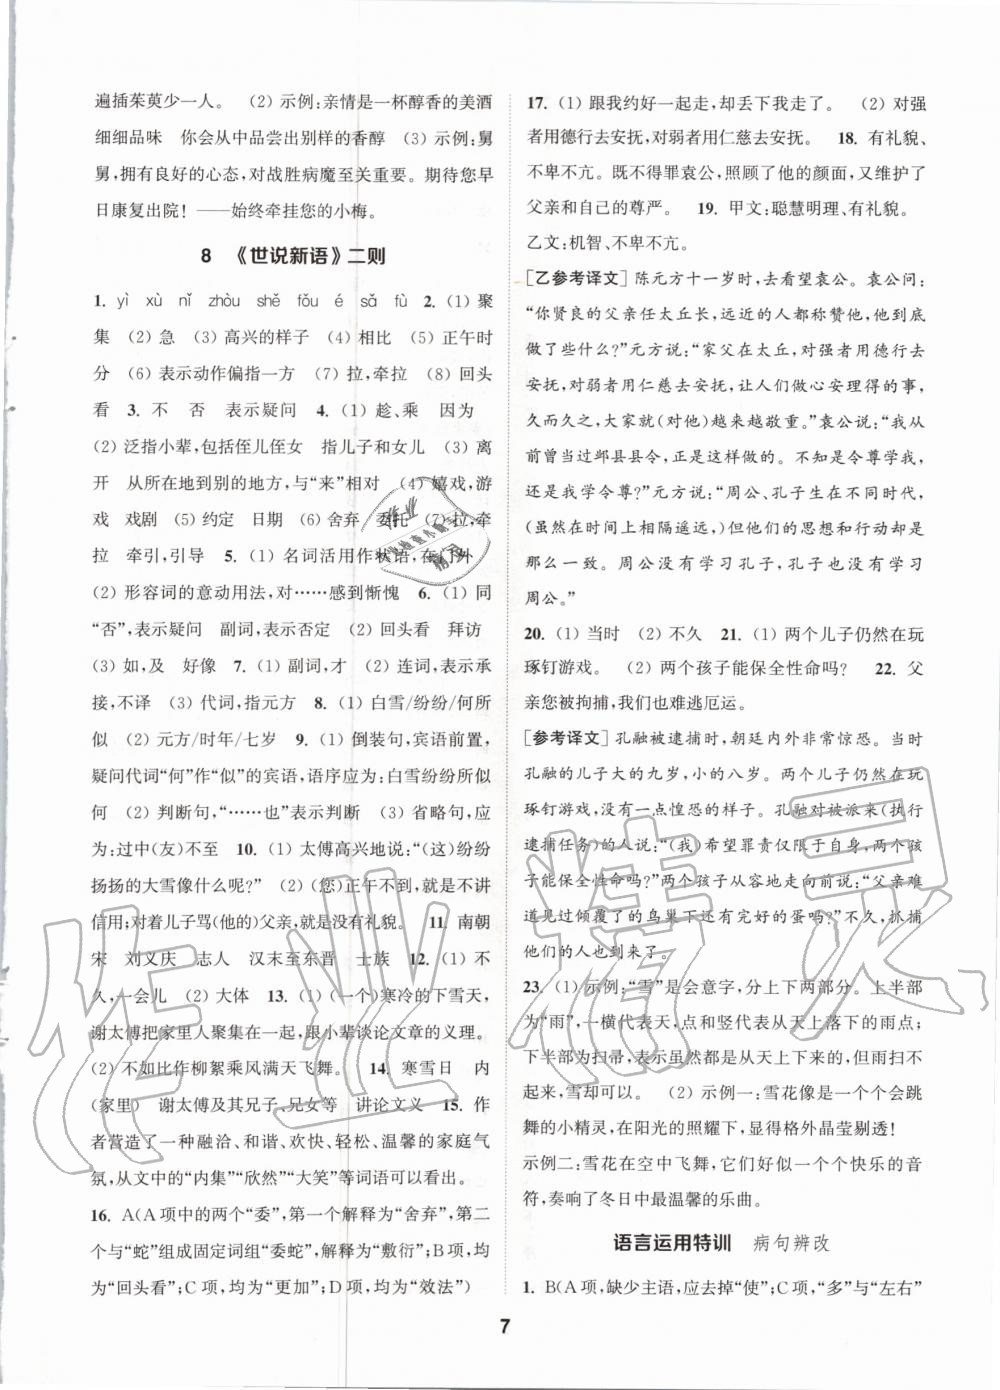 遍插茱萸少一人。 (2) 示例:亲情是一杯醇香的美酒
细细品味 你会从中品尝出别样的香醇 (3) 示例:舅
舅,拥有良好的心态,对战胜病魔至关重要。期待您早
日康复出院!——始终牵挂您的小梅。
8 《世说新语》二则
1. yì xù nǐ zhòu shě fǒu é sǎ fù 2. (1) 聚
集 (2) 急 (3) 高兴的样子 (4) 相比 (5) 正午时
分 (6) 表示动作偏指一方 (7) 拉,牵拉 (8) 回头
看 3. 不 否 表示疑问 4. (1) 趁、乘 因为
(2) 泛指小辈,包括侄儿侄女 指儿子和女儿 (3) 离
开 从所在地到别的地方,与“来”相对 (4) 嬉戏,游
戏 戏剧 (5) 约定 日期 (6) 舍弃 委托 (7) 拉,牵
拉 牵引,引导 5. (1) 名词活用作状语,在门外
(2) 形容词的意动用法,对……感到惭愧 6. (1) 同
“否”,表示疑问 副词,表示否定 (2) 回头看 拜访
(3) 如,及 好像 7. (1) 副词,才 (2) 连词,表示承
接,不译 (3) 代词,指元方 8. (1) 白雪/纷纷/何所
似 (2) 元方/时年/七岁 9. (1) 倒装句,宾语前置,
疑问代词“何”作“似”的宾语,语序应为:白雪纷纷所似
何 (2) 判断句,“……也”表示判断 (3) 省略句,应
为:过中(友)不至 10. (1) 太傅高兴地说:“(这)纷纷
扬扬的大雪像什么呢?” (2) (您)正午不到,就是不讲
信用;对着儿子骂(他的)父亲,就是没有礼貌。 11. 南朝
宋 刘义庆 志人 汉末至东晋 士族 12. (1) 不
久,一会儿 (2) 大体 13. (1) (一个)寒冷的下雪天,
谢太傅把家里人聚集在一起,跟小辈谈论文章的义理。
(2) 不如比作柳絮乘风满天飞舞。 14. 寒雪日 内
(家里) 谢太傅及其兄子、兄女等 讲论文义 15. 作
者营造了一种融洽、和谐、欢快、轻松、温馨的家庭气
氛,从文中的“内集”“欣然”“大笑”等词语可以看出。
16. A(A项中的两个“委”,第一个解释为“舍弃”,第二
个与“蛇”组成固定词组“委蛇”,解释为“敷衍”;B项,均
为“回头看”;C项,均为“更加”;D项,均为“效法”)
17. (1) 跟我约好一起走,却丢下我走了。 (2) 对强
者用德行去安抚,对弱者用仁慈去安抚。 18. 有礼貌、
不卑不亢。既不得罪袁公,照顾了他的颜面,又维护了
父亲和自己的尊严。 19. 甲文:聪慧明理、有礼貌。
乙文:机智、不卑不亢。
[乙参考译文] 陈元方十一岁时,去看望袁公。袁公问:
“你贤良的父亲任太丘长,远近的人都称赞他,他到底
做了些什么?”元方说:“家父在太丘,对强者用德行去
安抚,对弱者用仁慈去安抚,让人们做心安理得的事,
久而久之,大家就(对他)越来越敬重。”袁公说:“我从
前曾当过邺县县令,正是这样做的。不知是令尊学我,
还是我学令尊?”元方说:“周公、孔子生在不同时代,
(虽然在时间上相隔遥远,)但他们的思想和行动却是
那么一致。周公没有学习孔子,孔子也没有学习
周公。”
20. (1) 当时 (2) 不久 21. (1) 两个儿子仍然在玩
琢钉游戏。 (2) 两个孩子能保全性命吗? 22. 父
亲您被拘捕,我们也难逃厄运。
[参考译文] 孔融被逮捕时,朝廷内外非常惊恐。当时
孔融的儿子大的九岁,小的八岁。两个儿子仍然在玩
琢钉游戏,没有一点惶恐的样子。孔融对被派来(执行
逮捕任务)的人说:“(我)希望罪责仅限于自身,两个孩
子能保全性命吗?”两个孩子从容地走向前说:“父亲难
道见过倾覆了的鸟巢下还有完好的蛋吗?”不久,抓捕
他们的人也到来了。
23. (1) 示例:“雪”是会意字,分上下两部分。上半部
为“雨”,一横代表天,点和竖代表从天上落下的雨点;
下半部为扫帚,表示虽然都是从天上下来,但雨扫不
起来,雪却可以。 (2) 示例一:雪花像是一个个会跳
舞的小精灵,在阳光的照耀下,显得格外晶莹剔透!
示例二:雪花在空中飞舞,像一个个快乐的音
符,奏响了冬日中最温馨的乐曲。
语言运用特训 病句辨改
1. B(A项,缺少主语,应去掉“使”;C项,“多”与“左右”
7
作业精灵